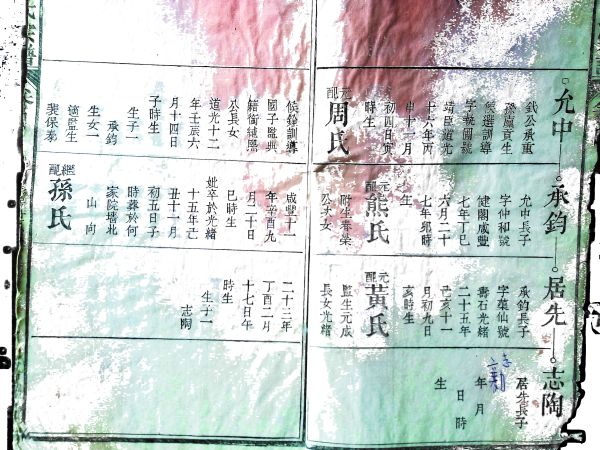 氏宗譜
允中
承重
孫廩貢生
候選訓導
靖臣道光
十六年丙
申十一月
初四日寅
時生
元配
周氏
候銓訓導
國子監典
籍銜純熙
公長女
道光十二
年壬辰六
月十四日
子時生
生子一
承鈞
生女一
適監生
龔保泰
承鈞
允中長子
字仲和號
健閣咸豐
七年丁巳
六月二十
七年卯時
生
元配
熊氏
附生春榮
公次女
咸豐十一
年辛酉九
月二十日
巳時生
妣卒於光緒
十五年己
丑十一月
初五日子
時葬於何
家院墻北
山 向
繼配
孫氏
居先
承鈞長子
字蕖仙號
壽石光緒
二十五年
己亥十一
月初九日
亥時生
元配
黃氏
監生元成
長女光緒
二十三年
丁酉二月
十七日午
時生
生子一
志陶
志陶
居先長子
年 月
日 時
生